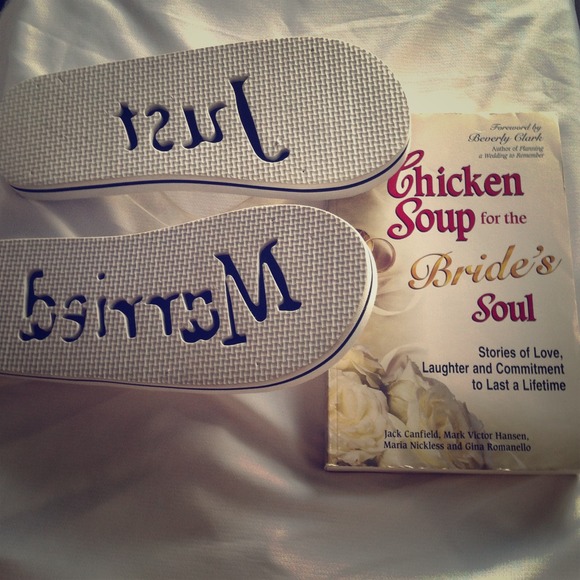 Just
Married
Foreword by
Beverly Clark
Author of Planning
a Wedding to Remember
Chicken
Soup for the
Bride's
Soul
Stories of Love,
Laughter and Commitment
to Last a Lifetime
Jack Canfield, Mark Victor Hansen,
Maria Nickless and Gina Romanello